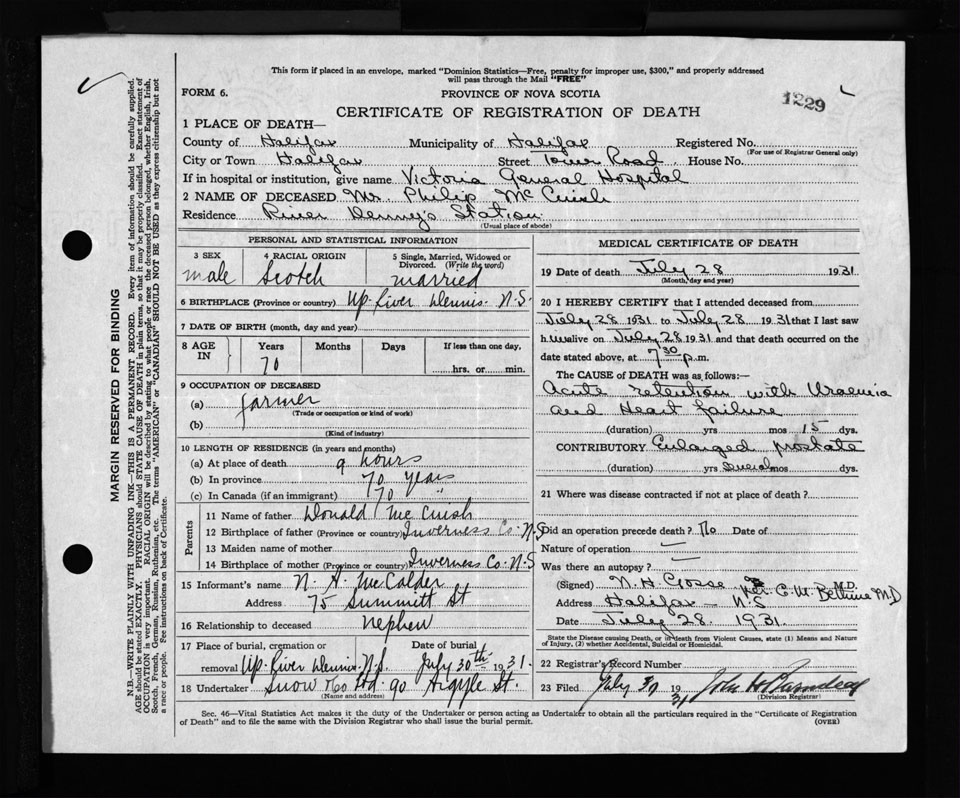 This form if placed in an envelope, marked "Dominion Statistics—Free, penalty for improper use, $300," and properly addressed
will pass through the Mail "FREE"
FORM 6.
PROVINCE OF NOVA SCOTIA
1229
CERTIFICATE OF REGISTRATION OF DEATH
1 PLACE OF DEATH—
County of Halifax Municipality of Halifax Registered No.
(For use of Registrar General only)
City or Town Halifax Street Tower Road House No.
If in hospital or institution, give name Victoria General Hospital
2 NAME OF DECEASED Mr. Philip Mc Cuish
Residence River Denny's Station
(Usual place of abode)
MARGIN RESERVED FOR BINDING
N.B.—WRITE PLAINLY WITH UNFADING INK—THIS IS A PERMANENT RECORD. Every item of information should be carefully supplied.
AGE should be stated EXACTLY. PHYSICIANS should STATE CAUSE OF DEATH in plain terms, so that it may be properly classified. Exact statement of
OCCUPATION is very important. RACIAL ORIGIN will be described by stating to what people or race the deceased person belonged, whether English, Irish,
Scotch, French, German, Russian, Ruthenian, etc. The terms "AMERICAN" or "CANADIAN" SHOULD NOT BE USED as they express citizenship but not
a race or people. See instructions on back of Certificate.
PERSONAL AND STATISTICAL INFORMATION
3 SEX
male
4 RACIAL ORIGIN
Scotch
5 Single, Married, Widowed or
Divorced. (Write the word)
married
6 BIRTHPLACE (Province or country) Up. River Dennis. N.S.
7 DATE OF BIRTH (month, day and year)
8 AGE IN
Years Months Days If less than one day,
70 hrs. or min.
9 OCCUPATION OF DECEASED
(a) farmer
(Trade or occupation or kind of work)
(b)
(Kind of industry)
10 LENGTH OF RESIDENCE (in years and months)
(a) At place of death 9 hours
(b) In province 70 years
(c) In Canada (if an immigrant) 70 "
Parents
11 Name of father Donald Mc Cuish
12 Birthplace of father (Province or country) Inverness Co. N.S
13 Maiden name of mother
14 Birthplace of mother (Province or country) Inverness Co. N.S
15 Informant's name N. A. McCalder
Address 75 Summitt St
16 Relationship to deceased nephew
17 Place of burial, cremation or Date of burial
removal Up. River Dennis. N.S. July 30th 1931.
18 Undertaker Snow & Co Ltd. 90 Argyle St.
(Name and address)
MEDICAL CERTIFICATE OF DEATH
19 Date of death July 28 1931
(Month, day and year)
20 I HEREBY CERTIFY that I attended deceased from
July 28 1931 to July 28 1931 that I last saw
him alive on July 28 1931 and that death occurred on the
date stated above, at 7 30 p.m.
The CAUSE OF DEATH was as follows:—
Acute retention with Uraemia
and Heart failure
(duration) yrs mos 15 dys.
CONTRIBUTORY Enlarged prostate
(duration) yrs Several mos dys.
21 Where was disease contracted if not at place of death?
Did an operation precede death? No Date of
Nature of operation
Was there an autopsy?
(Signed) N. H. Gosse per C. M. Bethune MD M.D.
Address Halifax - N.S
Date July 28. 1931.
State the Disease causing Death, or in death from Violent Causes, state (1) Means and Nature
of Injury, (2) whether Accidental, Suicidal or Homicidal.
22 Registrar's Record Number
23 Filed July 30 1931 John
(Division Registrar)
Sec. 46—Vital Statistics Act makes it the duty of the Undertaker or person acting as Undertaker to obtain all the particulars required in the "Certificate of Registration
of Death" and to file the same with the Division Registrar who shall issue the burial permit.
(OVER)